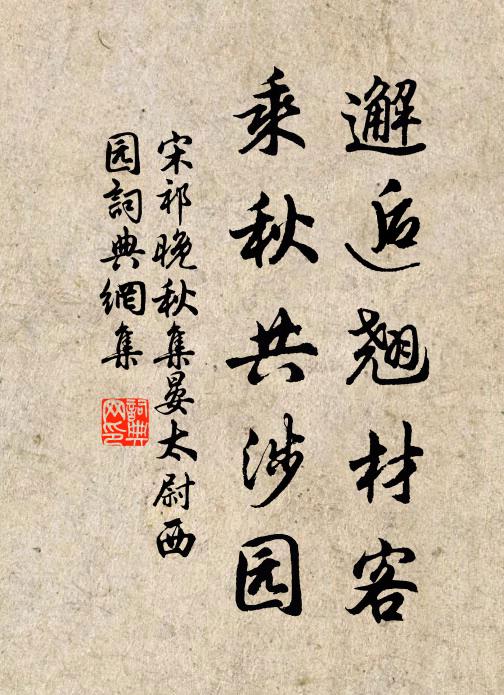 邂逅翘材客
乘秋共涉园
宋祁晚秋集晏太尉西
园詞典網集
詞典网印